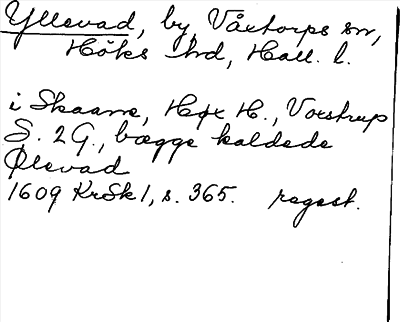 Yllevad, by, Våxtorps sn,
Höks hd, Hall. l.
i Skaane, Høx H., Voxtrup
S. 2 G., bægge kaldede
Ølevad
1609 KrSk 1, s. 365. regest.